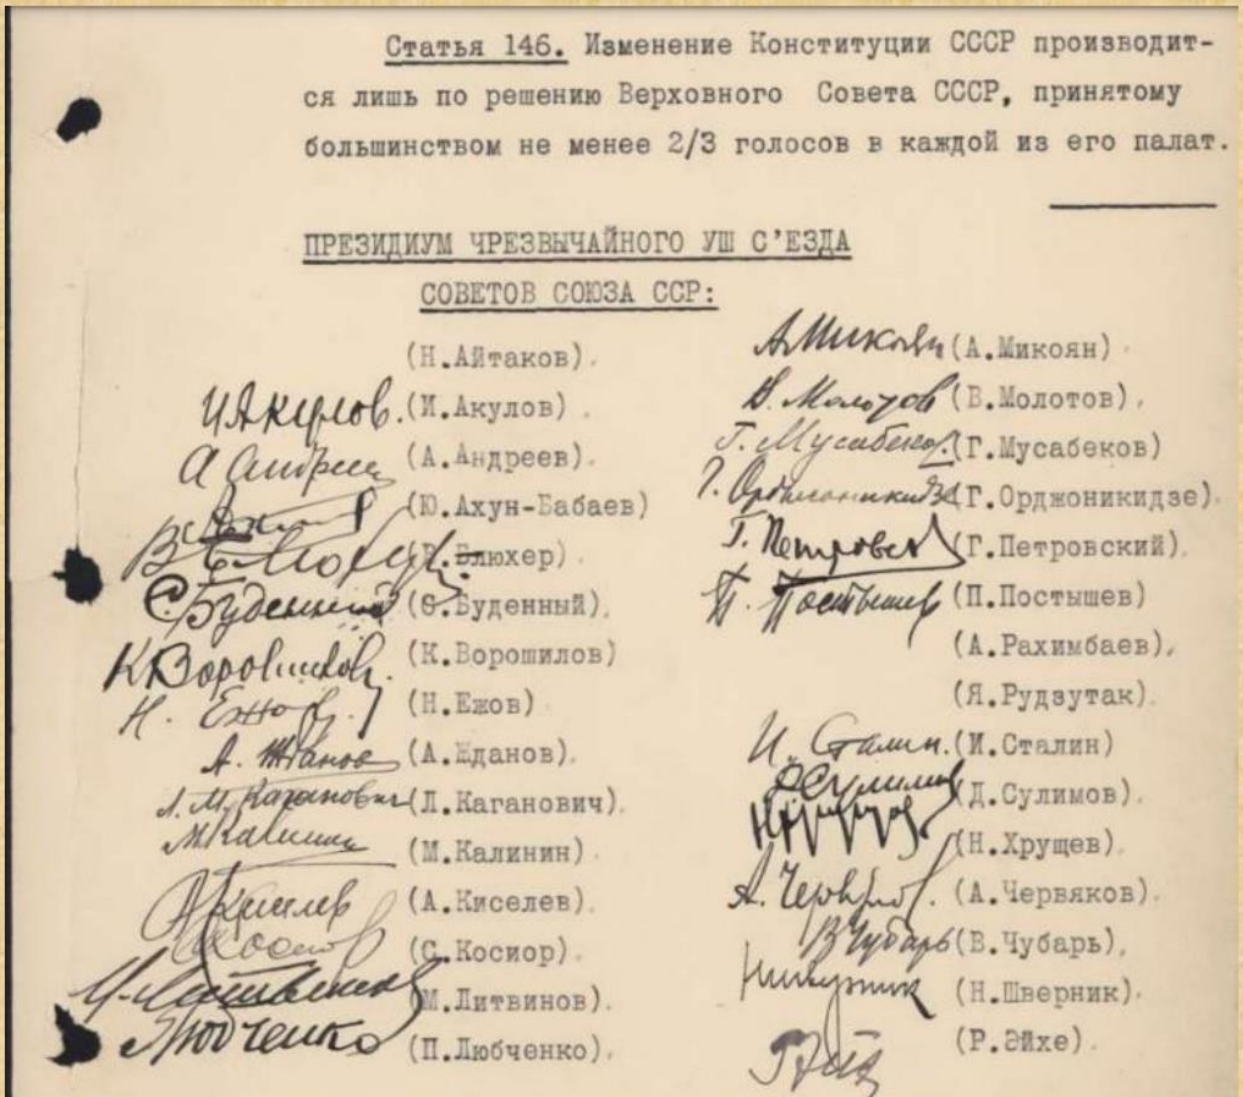 Статья 146. Изменение Конституции СССР производит-
ся лишь по решению Верховного Совета СССР, принятому
большинством не менее 2/3 голосов в каждой из его палат.
ПРЕЗИДИУМ ЧРЕЗВЫЧАЙНОГО УШ С'ЕЗДА
СОВЕТОВ СОЮЗА ССР:
(Н.Айтаков).
И Акулов. (И.Акулов).
А Андреев (А.Андреев).
(Ю.Ахун-Бабаев)
В Блюхер. (В.Блюхер).
С. Буденный (С.Буденный).
К Ворошилов. (К.Ворошилов)
Н. Ежов. (Н.Ежов)
А. Жданов (А.Жданов).
Л. М. Каганович (Л.Каганович).
М Калинин (М.Калинин).
А Киселев (А.Киселев).
Косиор (С.Косиор).
М. Литвинов (М.Литвинов).
Любченко (П.Любченко).
А Микоян (А.Микоян).
В. Молотов (В.Молотов).
Г. Мусабеков. (Г.Мусабеков)
Г. Орджоникидзе (Г.Орджоникидзе).
Г. Петровский (Г.Петровский).
П. Постышев (П.Постышев)
(А.Рахимбаев).
(Я.Рудзутак).
И. Сталин. (И.Сталин)
Д Сулимов (Д.Сулимов).
Н Хрущев (Н.Хрущев).
А. Червяков. (А.Червяков).
В Чубарь (В.Чубарь).
Н Шверник (Н.Шверник).
Р Эйхе (Р.Эйхе).